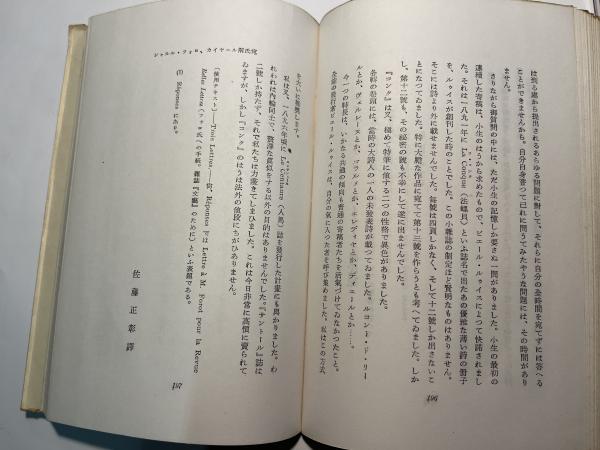 は到る處から提出されるあらゆる問題に對して、それらに自分の全時間を宛てずには答へる
ことができませんから。自分自身沓つて已れに問うてみたやうな問題には、その時間があり
ません。
さりながら御質問の中には、ただ小生の記憶しか要さぬ一問があります。小生の最初の
連續した寄稿は、小生のはうから求めたもので、ピエール・ルイスによつて快諾されまし
た。それは一八九一年に La Conque(法螺貝)といふ誌名で出たあの優雅な薄い詩の册子
を、ルゥイスが創刊した時のことでした。この小雜誌の制定ほど賢明なものはありません。
そこには詩より外に載せませんでした。毎號は四頁しかなく、そして十二號しか出さないこ
とになつてゐました。特に大膽な作品に宛てて第十三號を作らうとも考へてゐました。しか
し、第十二號も、その祕密の號も不幸にして遂に出ませんでした。
『コンク』は又、極めて特筆に値する二つの性格で異色がありました。
各輯の卷頭には、當時の大詩人の一人の未發表詩が載つてゐました。ルコンド・ド・リー
ルとか、ヴェルレーヌとか、マラルメとか、エレディヤとか、ディエールとか……。
今一つの特長は、いかなる共通の傾向も普通の寄稿者たちを活氣づけてゐなかつたこと。
全輯の發行者ピエール・ルゥイスは、自分の氣に入つた者を呼び集めました。私はこの方式
496
シャルル・フォロ、カイヤール兩氏宛
を大いに推奬します。
私は又、一八九六年頃に La Centaure(人馬)誌を發行した計畫にも與かりました。わ
れわれは内輪同士で、贅澤な眞似をする以外の目的はありませんでした。『サントール』誌は
二號しか持たず、それで私たちは力盡きてしまひました。これは今日非常に高價に賣られて
ゐますが、しかし『コンク』のはうは法外の値段にちがひありません。
(使用テキスト)――Trois Lettres.――宛、Réponses では Lettre à M. Forot pour la Revue
Belles Lettres(フォロ氏への手紙。雜誌『文藝』のために)といふ表題である。
(1) Réponses にあり。
佐藤正彰譯
497